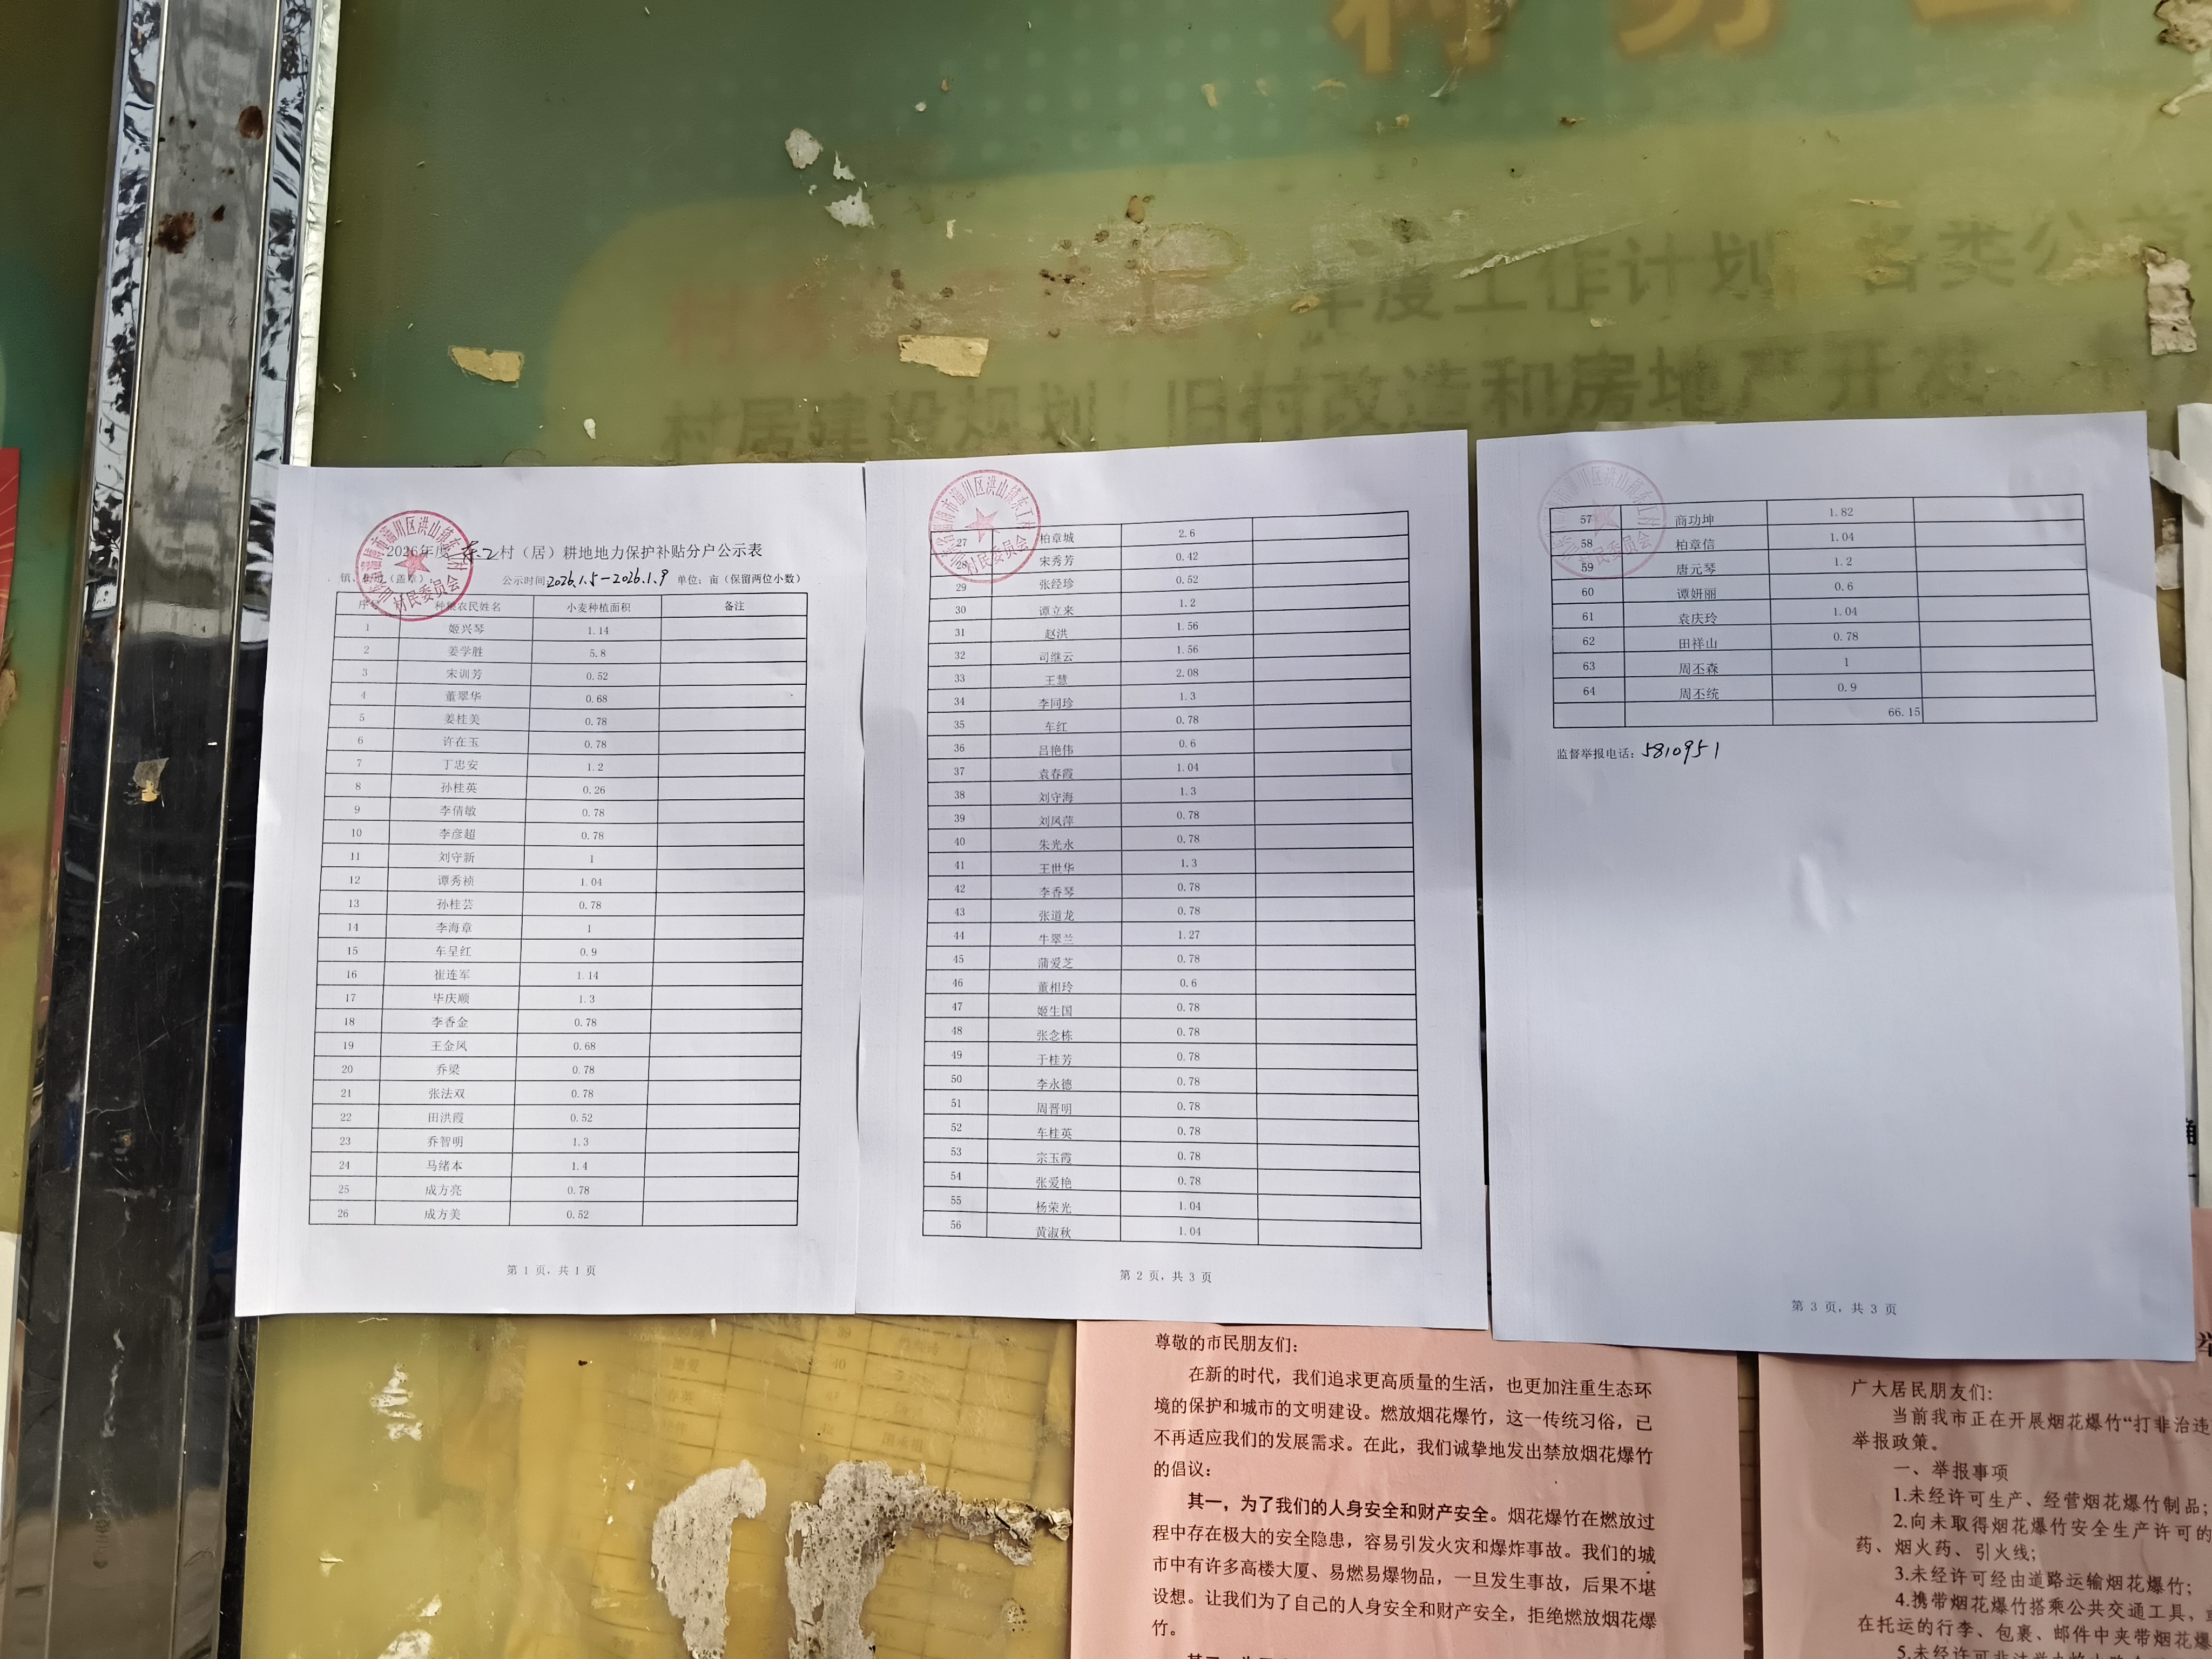 年度工作计划 各类公益
村居建设规划、旧村改造和房地产开发
淄博市淄川区洪山镇东工村
村民委员会
2026年度东工村（居）耕地地力保护补贴分户公示表
公示时间2026.1.5-2026.1.9 单位：亩（保留两位小数）
种粮农民姓名 小麦种植面积 备注
1 姬兴琴 1.14
2 姜学胜 5.8
3 宋训芳 0.52
4 董翠华 0.68
5 姜桂美 0.78
6 许在玉 0.78
7 丁忠安 1.2
8 孙桂英 0.26
9 李倩敏 0.78
10 李彦超 0.78
11 刘守新 1
12 谭秀祯 1.04
13 孙桂芸 0.78
14 李海章 1
15 车呈红 0.9
16 崔连军 1.14
17 毕庆顺 1.3
18 李香金 0.78
19 王金凤 0.68
20 乔梁 0.78
21 张法双 0.78
22 田洪霞 0.52
23 乔智明 1.3
24 马绪本 1.4
25 成方亮 0.78
26 成方美 0.52
第 1 页，共 1 页
27 柏章城 2.6
28 宋秀芳 0.42
29 张经珍 0.52
30 谭立来 1.2
31 赵洪 1.56
32 司继云 1.56
33 王慧 2.08
34 李同珍 1.3
35 车红 0.78
36 吕艳伟 0.6
37 袁春霞 1.04
38 刘守海 1.3
39 刘凤萍 0.78
40 朱光永 0.78
41 王世华 1.3
42 李香琴 0.78
43 张道龙 0.78
44 牛翠兰 1.27
45 蒲爱芝 0.78
46 董相玲 0.6
47 姬生国 0.78
48 张念栋 0.78
49 于桂芳 0.78
50 李永德 0.78
51 周晋明 0.78
52 车桂英 0.78
53 宗玉霞 0.78
54 张爱艳 0.78
55 杨荣光 1.04
56 黄淑秋 1.04
第 2 页，共 3 页
57 商功坤 1.82
58 柏章信 1.04
59 唐元琴 1.2
60 谭妍丽 0.6
61 袁庆玲 1.04
62 田祥山 0.78
63 周丕森 1
64 周丕统 0.9
66.15
监督举报电话：5810951
第 3 页，共 3 页
尊敬的市民朋友们：
在新的时代，我们追求更高质量的生活，也更加注重生态环
境的保护和城市的文明建设。燃放烟花爆竹，这一传统习俗，已
不再适应我们的发展需求。在此，我们诚挚地发出禁放烟花爆竹
的倡议：
其一，为了我们的人身安全和财产安全。烟花爆竹在燃放过
程中存在极大的安全隐患，容易引发火灾和爆炸事故。我们的城
市中有许多高楼大厦、易燃易爆物品，一旦发生事故，后果不堪
设想。让我们为了自己的人身安全和财产安全，拒绝燃放烟花爆
竹。
广大居民朋友们：
当前我市正在开展烟花爆竹“打非治违
举报政策。
一、举报事项
1.未经许可生产、经营烟花爆竹制品；
2.向未取得烟花爆竹安全生产许可的
药、烟火药、引火线；
3.未经许可经由道路运输烟花爆竹；
4.携带烟花爆竹搭乘公共交通工具，
在托运的行李、包裹、邮件中夹带烟花爆